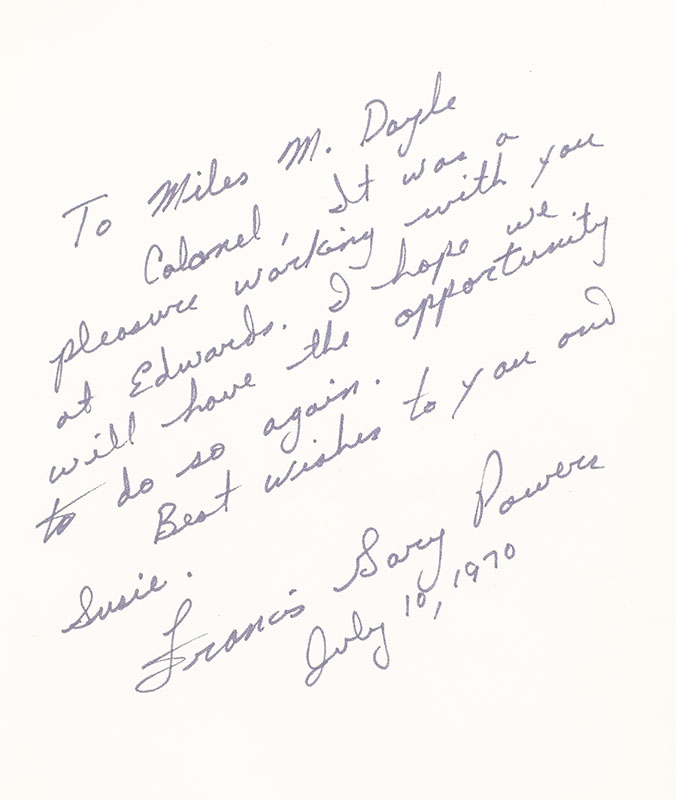 To Miles M. Doyle
Colonel, It was a
pleasure working with you
at Edwards. I hope we
will have the opportunity
to do so again.
Best wishes to you and
Susie.
Francis Gary Powers
July 10, 1970